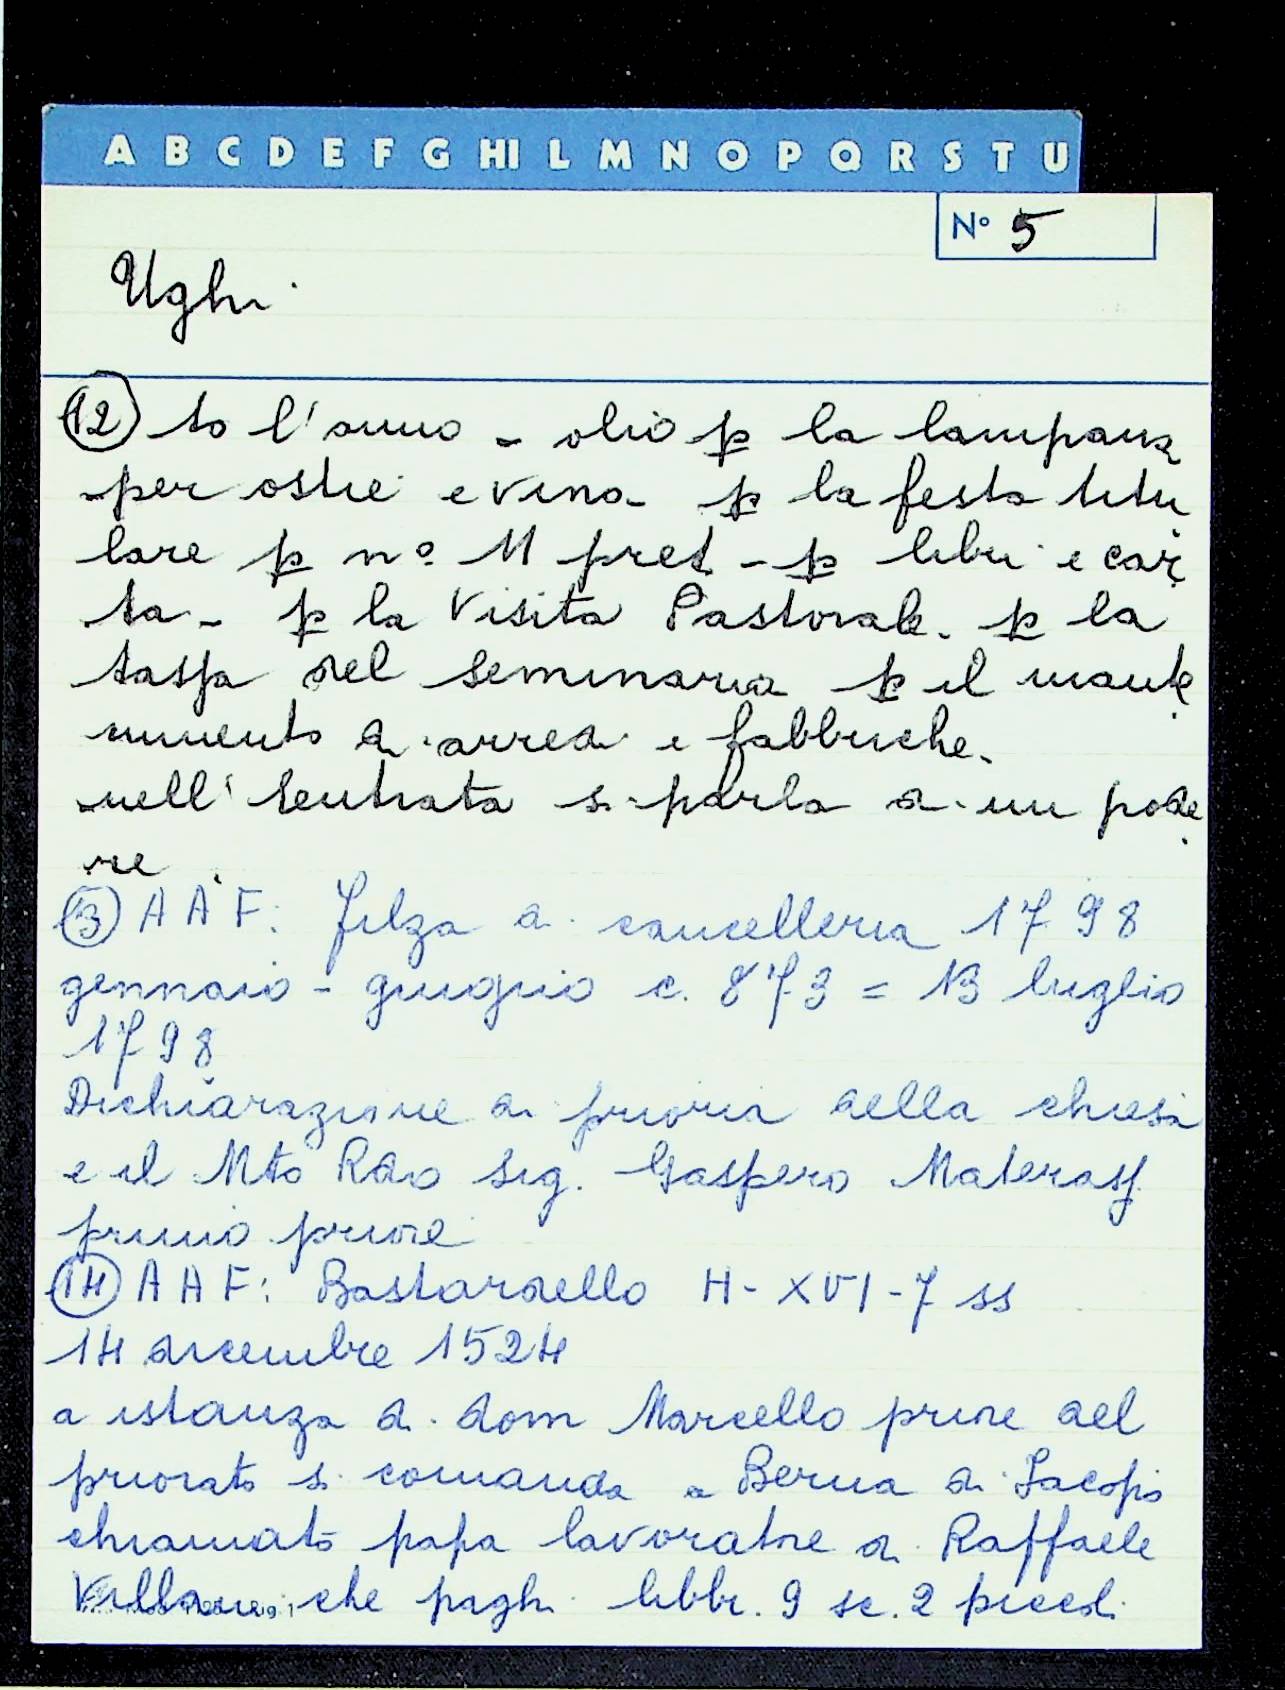 A B C D E F G HI L M N O P Q R S T U
N° 5
Ughi
12) to l'anno - olio p la lampana
-per ostie e vino - p la festa titu
lare p n° 11 preti - p libri e car
ta - p la Visita Pastorale - p la
tassa del seminario p il mante
nimento di arredi e fabbriche.
nell'sentrata si parla di un pode
re.
13) A A F: filza di cancelleria 1798
gennaio - giugno c. 873 = 13 luglio
1798
Dichiarazione di prioria della chiesa
e il Mto Rdo Sig. Gaspero Materassi
primo priore
14) A A F: Bastardello H - XVI - 7 ss
14 dicembre 1524
a istanza di dom Marcello priore del
priorato si comanda a Berna di Jacopo
chiamato papa lavoratore di Raffaele
Villani che paghi libbr. 9 sc. 2 piccoli